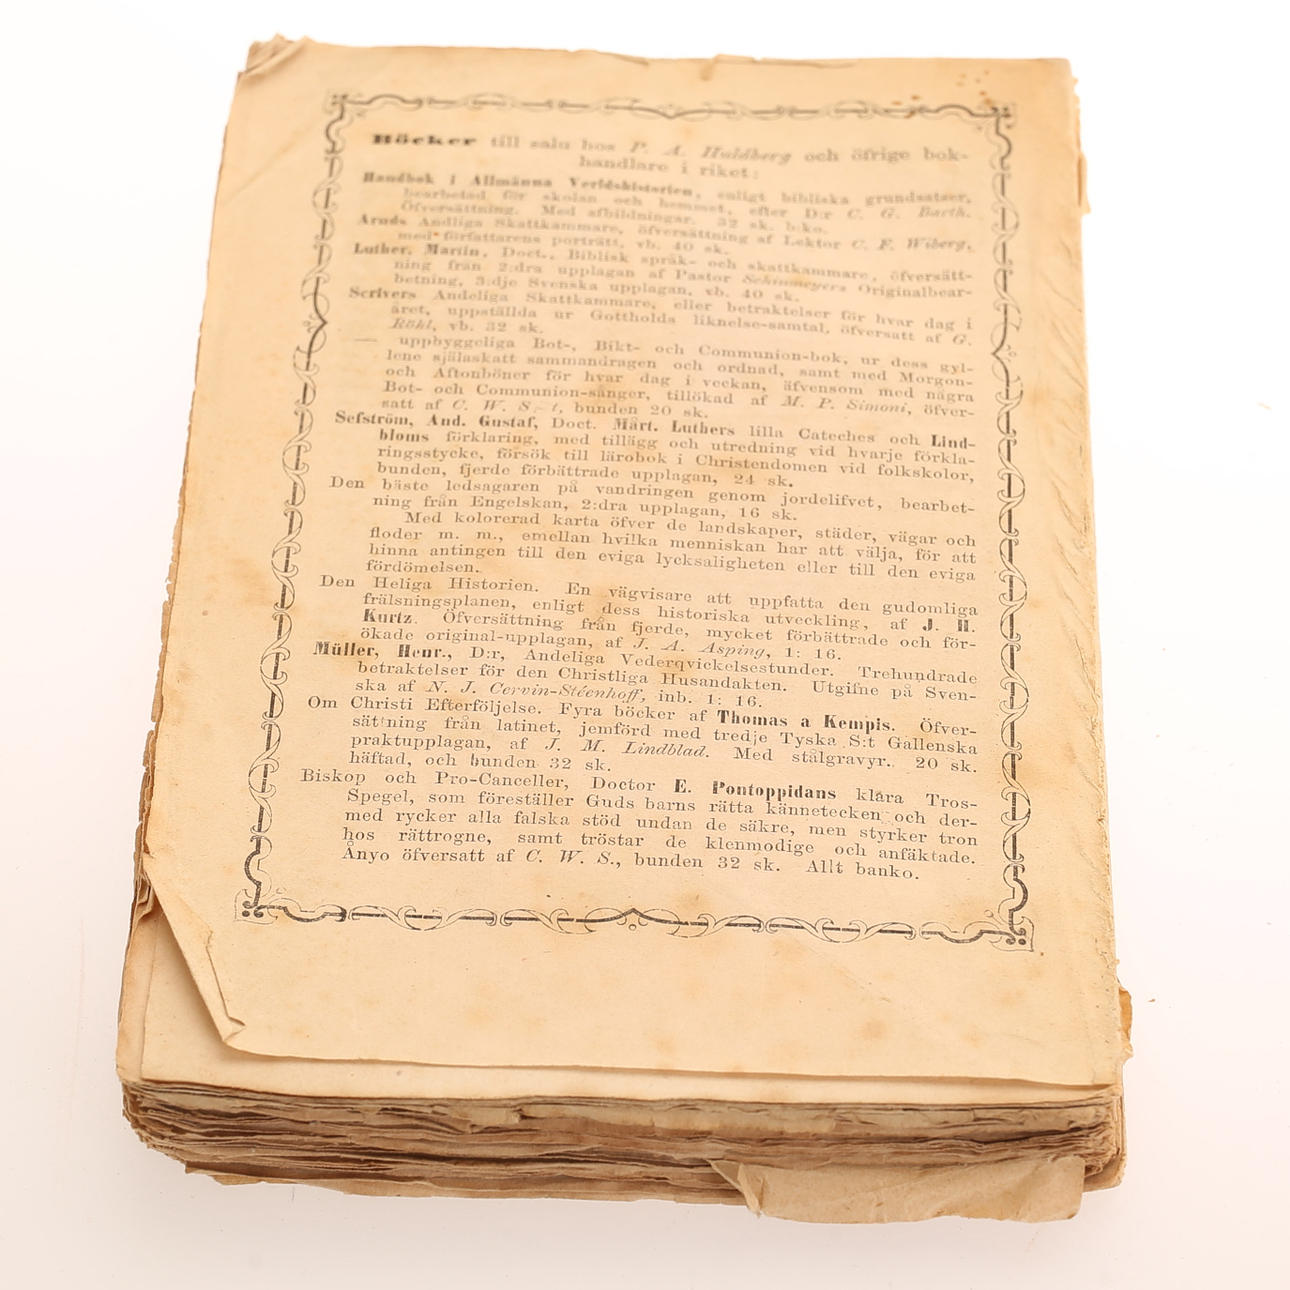 Böcker till salu hos P. A. Huldberg och öfrige bok-
handlare i riket:
Handbok i Allmänna Verldshistorien, enligt bibliska grundsatser,
bearbetad för skolan och hemmet, efter D:r C. G. Barth.
Öfversättning. Med afbildningar. 32 sk. b:ko.
Arnds Andliga Skattkammare, öfversättning af Lektor C. F. Wiberg,
med författarens porträtt, vb. 40 sk.
Luther, Martin, Doct., Biblisk språk- och skattkammare, öfversätt-
ning från 2:dra upplagan af Pastor Schinmeyers Originalbear-
betning, 3:dje Svenska upplagan, vb. 40 sk.
Scrivers Andeliga Skattkammare, eller betraktelser för hvar dag i
året, uppställda ur Gottholds liknelse-samtal, öfversatt af G.
Röhl, vb. 32 sk.
— uppbyggeliga Bot-, Bikt- och Communion-bok, ur dess gyl-
lene själaskatt sammandragen och ordnad, samt med Morgon-
och Aftonböner för hvar dag i veckan, äfvensom med några
Bot- och Communion-sånger, tillökad af M. P. Simoni, öfver-
satt af C. W. S—t, bunden 20 sk.
Sefström, And. Gustaf, Doct. Mårt. Luthers lilla Cateches och Lind-
bloms förklaring, med tillägg och utredning vid hvarje förkla-
ringsstycke, försök till lärobok i Christendomen vid folkskolor,
bunden, fjerde förbättrade upplagan, 24 sk.
Den bäste ledsagaren på vandringen genom jordelifvet, bearbet-
ning från Engelskan, 2:dra upplagan, 16 sk.
Med kolorerad karta öfver de landskaper, städer, vägar och
floder m. m., emellan hvilka menniskan har att välja, för att
hinna antingen till den eviga lycksaligheten eller till den eviga
fördömelsen.
Den Heliga Historien. En vägvisare att uppfatta den gudomliga
frälsningsplanen, enligt dess historiska utveckling, af J. H.
Kurtz. Öfversättning från fjerde, mycket förbättrade och för-
ökade original-upplagan, af J. A. Asping, 1: 16.
Müller, Henr., D:r, Andeliga Vederqvickelsestunder. Trehundrade
betraktelser för den Christliga Husandakten. Utgifne på Sven-
ska af N. J. Cervin-Stéenhoff, inb. 1: 16.
Om Christi Efterföljelse. Fyra böcker af Thomas a Kempis. Öfver-
sättning från latinet, jemförd med tredje Tyska S:t Gallenska
praktupplagan, af J. M. Lindblad. Med stålgravyr. 20 sk.
häftad, och bunden 32 sk.
Biskop och Pro-Canceller, Doctor E. Pontoppidans klara Tros-
Spegel, som föreställer Guds barns rätta kännetecken och der-
med rycker alla falska stöd undan de säkre, men styrker tron
hos rättrogne, samt tröstar de klenmodige och anfäktade.
Ånyo öfversatt af C. W. S., bunden 32 sk. Allt banko.